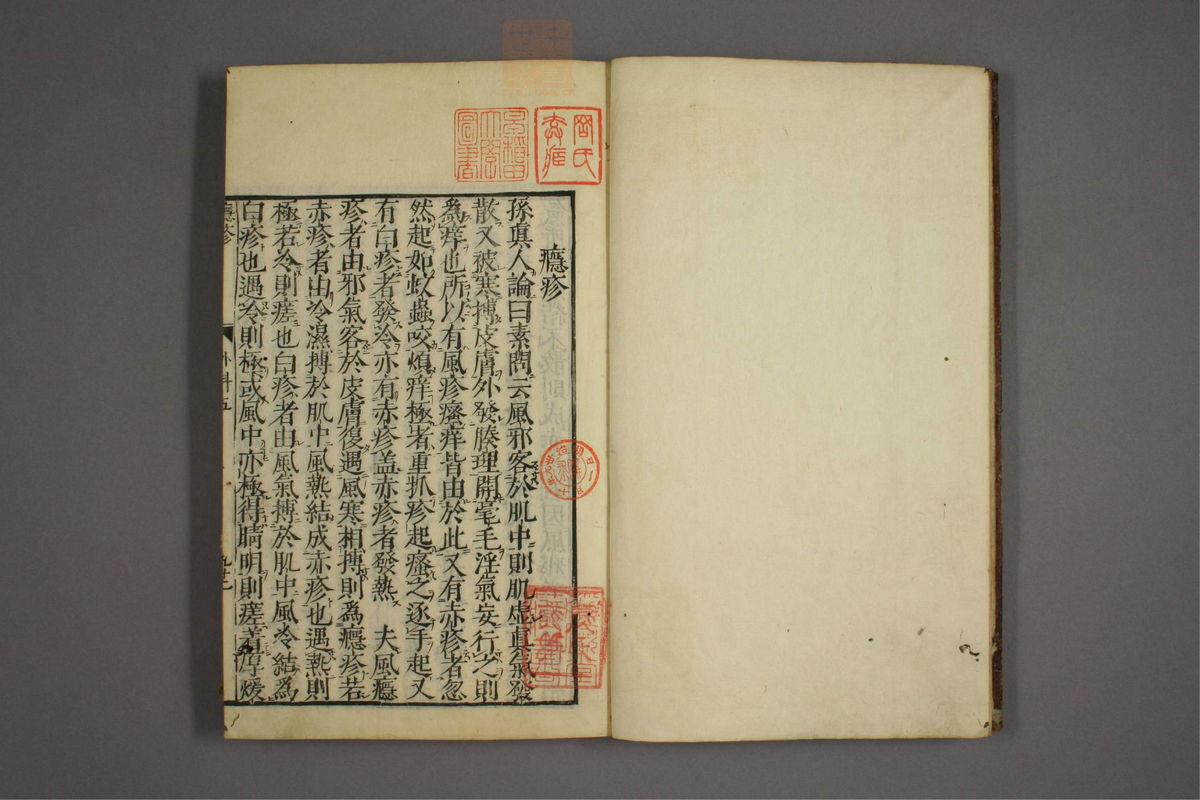 癮疹
孫真人論曰素問云風邪客於肌中則肌虛真氣發
散又被寒搏皮膚外發腠理開毫毛淫氣妄行之則
為痒也所以有風疹瘙痒皆由於此又有赤疹者忽
然起如蚊蟲咬煩痒極者重抓疹起瘙之逐手起又
有白疹者發冷亦有赤疹盖赤疹者發熱 夫風癮
疹者由邪氣客於皮膚復遇風寒相搏則為癮疹若
赤疹者由冷濕搏於肌中風熱結成赤疹也遇熱則
極若冷則瘥也白疹者由風氣搏於肌中風冷結為
白疹也遇冷則極或風中亦極得晴明則瘥着厚煖
癮疹
外科五
早稻田
大學
圖書